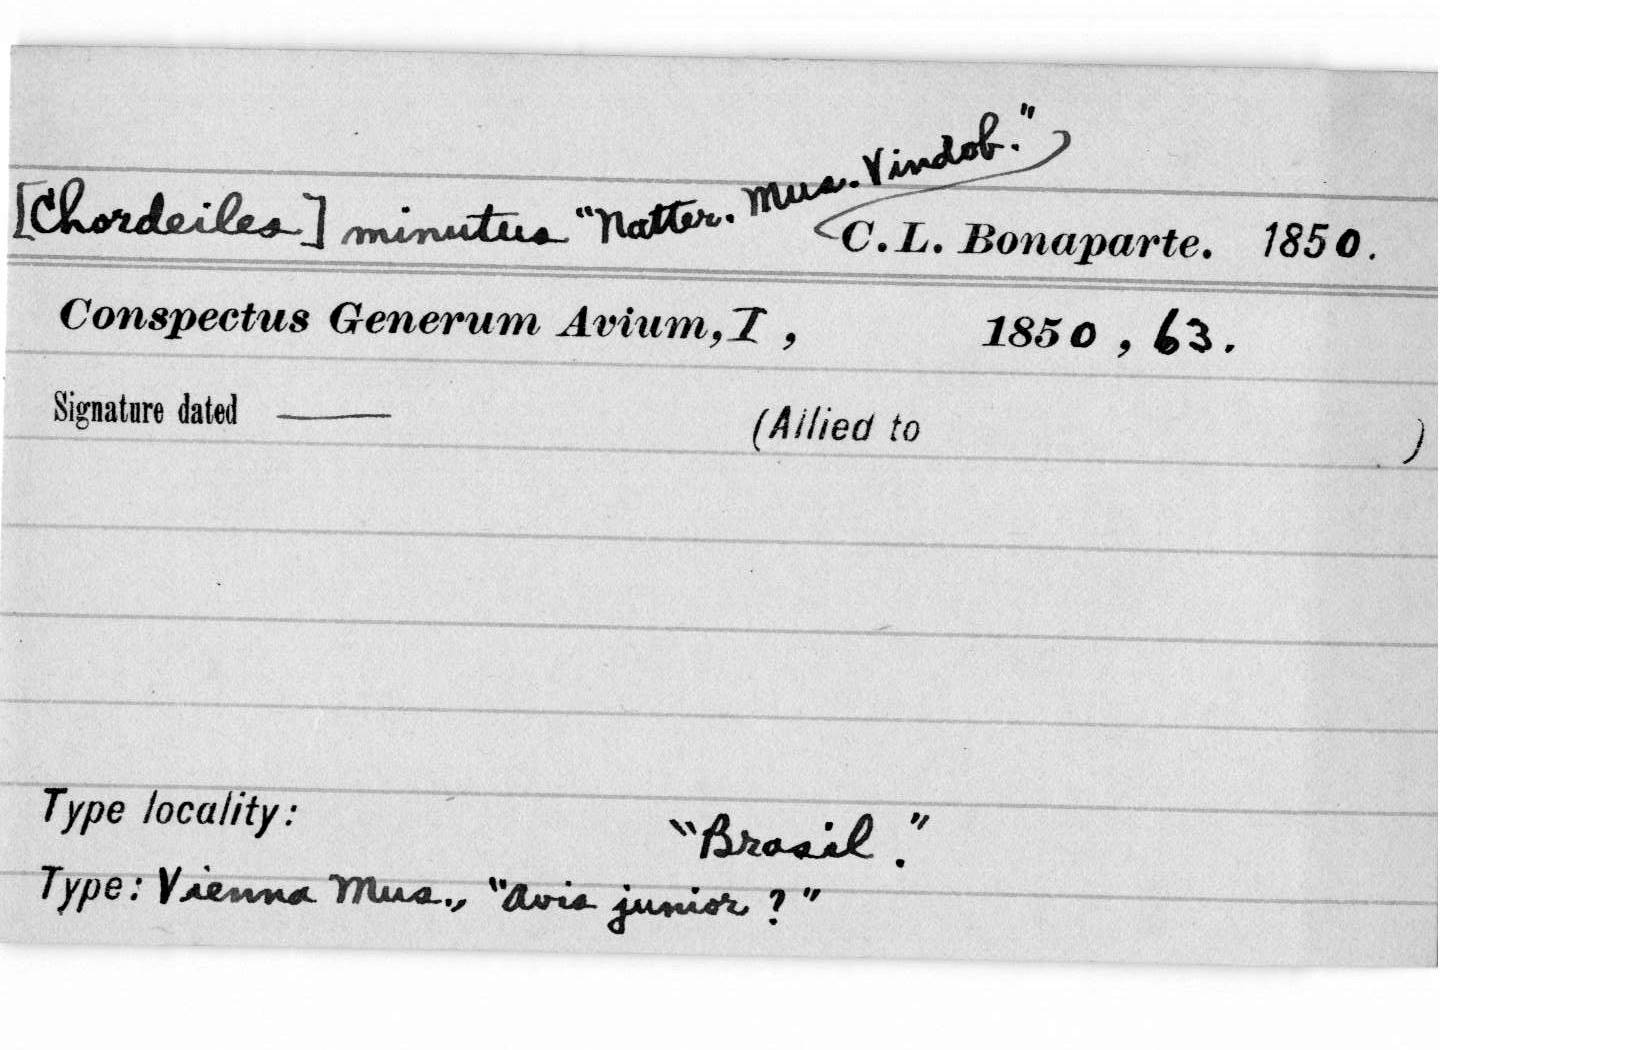 [Chordeiles] minutus "Natter. Mus. Vindob."
C. L. Bonaparte. 1850.
Conspectus Generum Avium, I, 1850, 63.
Signature dated —— (Allied to )
Type locality: "Brasil."
Type: Vienna Mus., "Avis junior?"